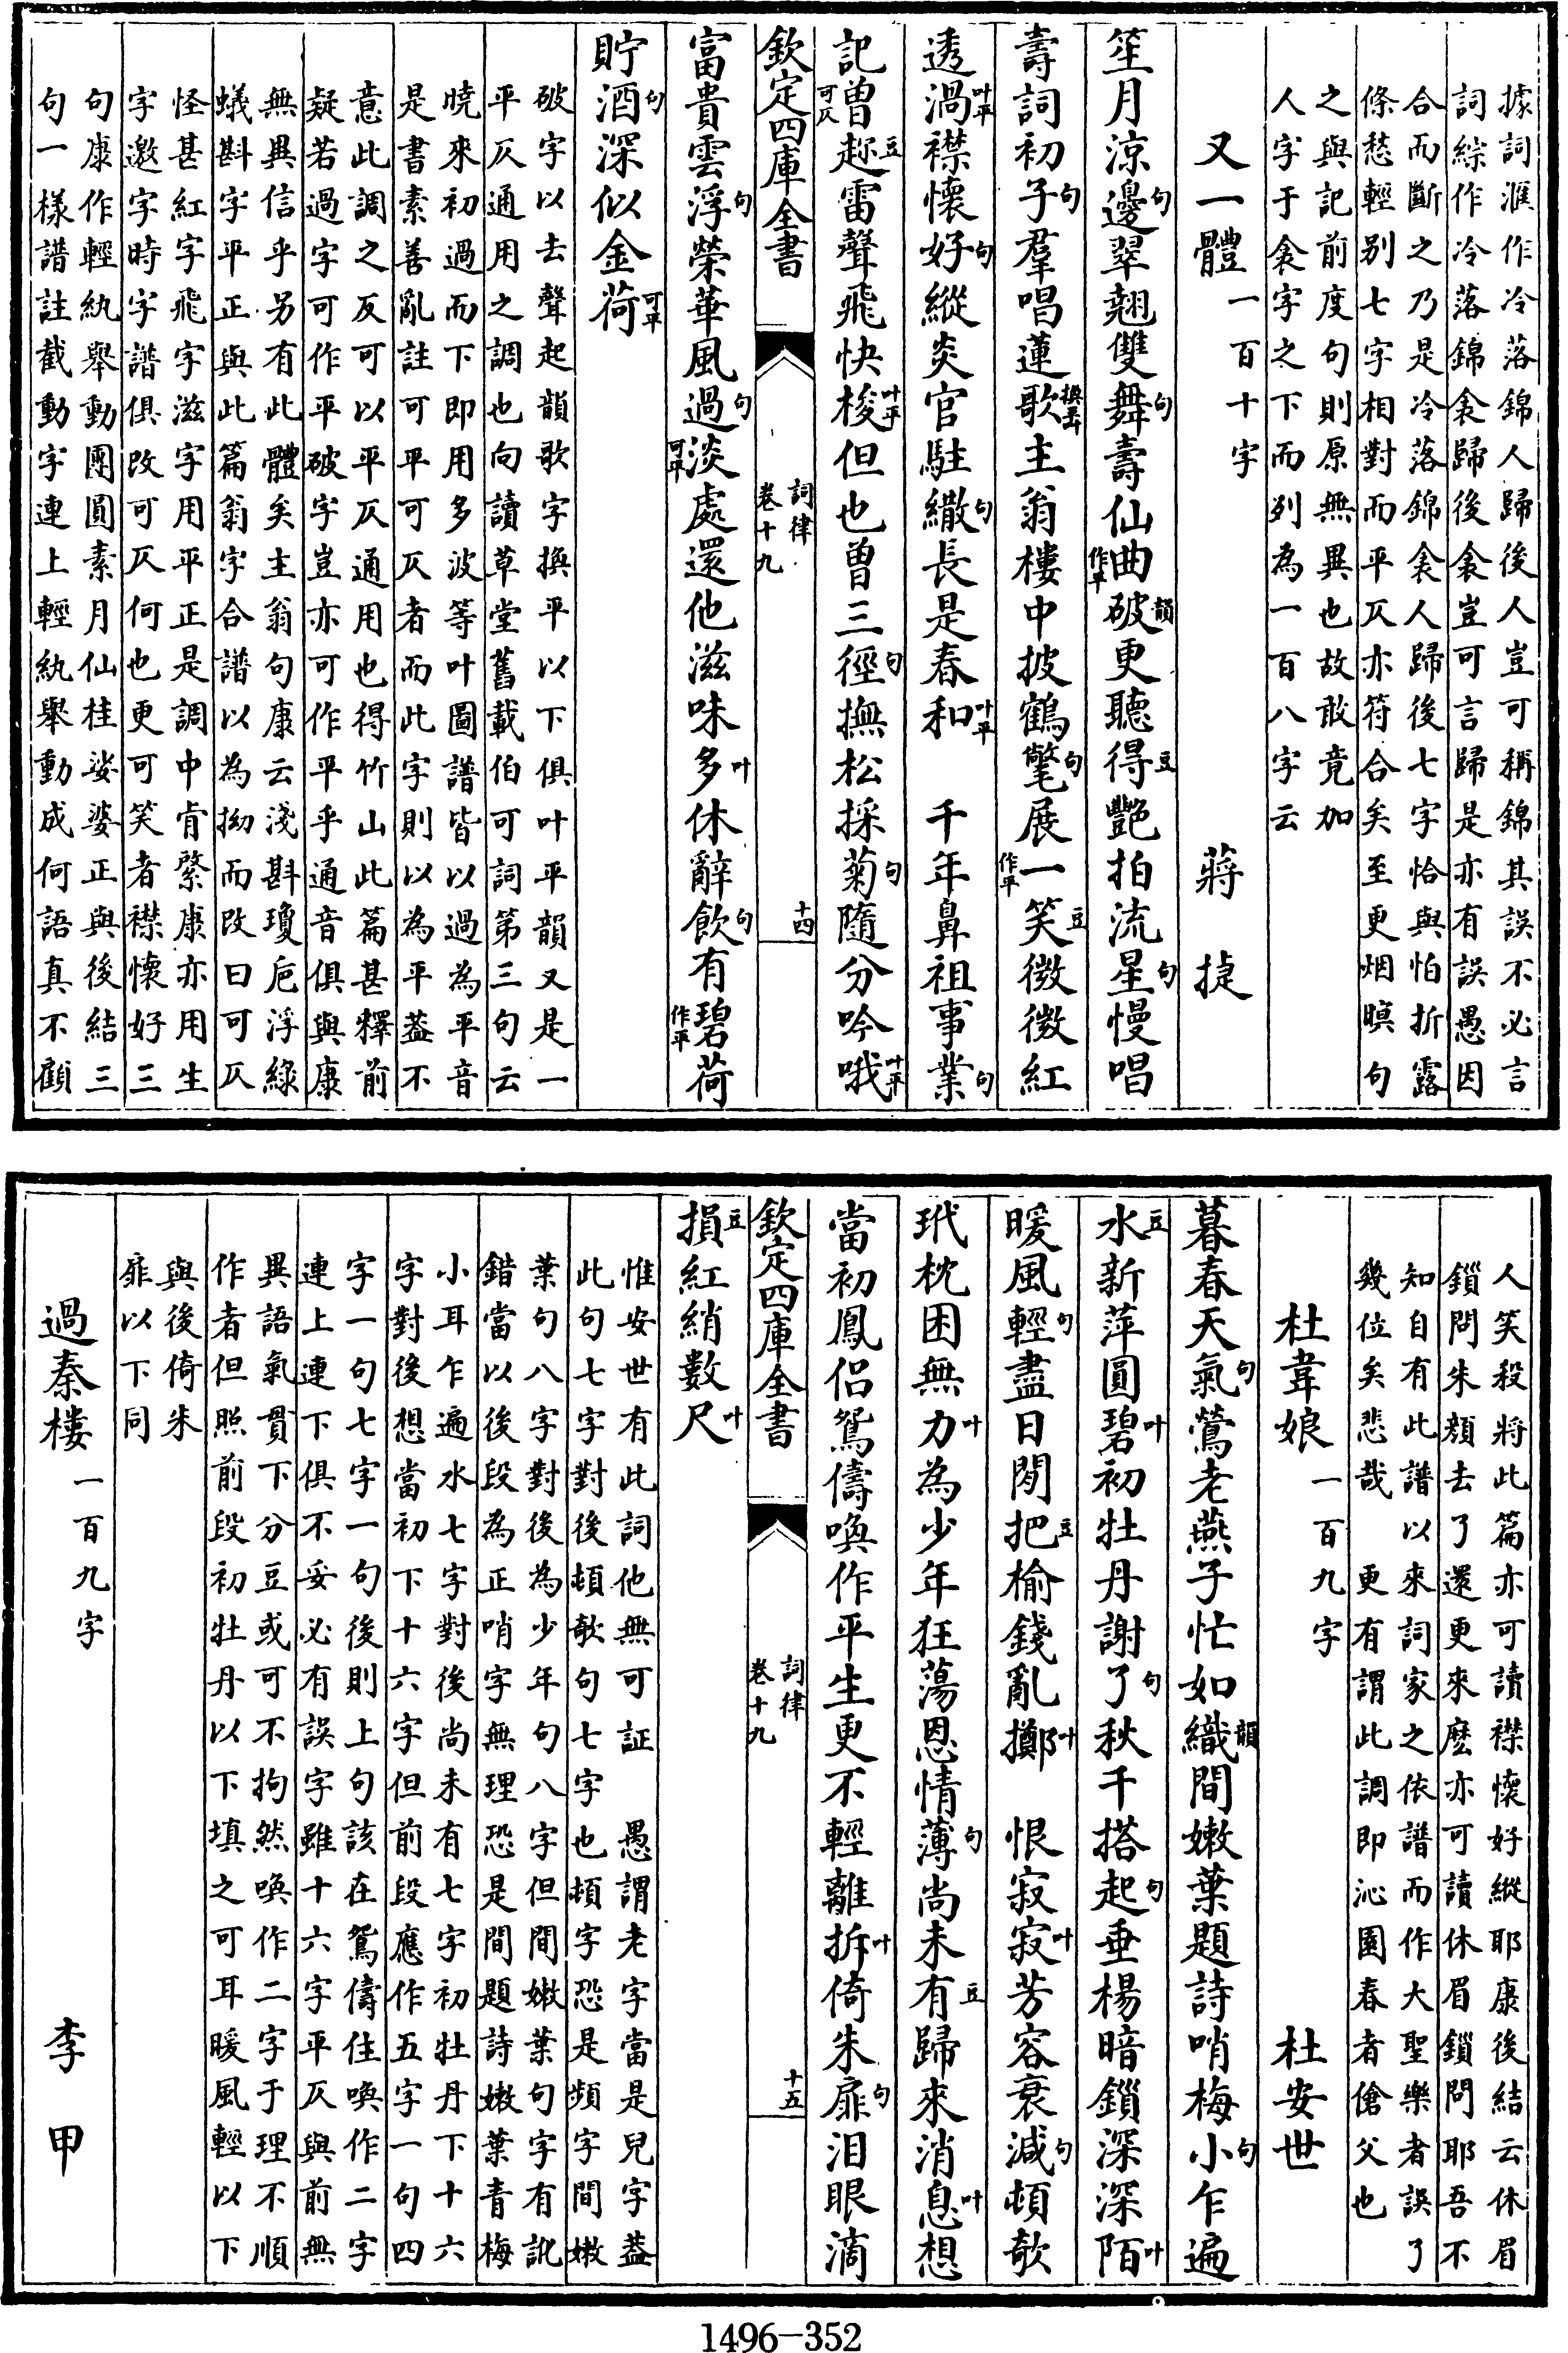 據詞滙作冷落錦人歸後人豈可稱錦其誤不必言
詞綜作冷落錦衾歸後衾豈可言歸是亦有誤愚因
合而斷之乃是冷落錦衾人歸後七字恰與怕折露
條愁輕别七字相對而平仄亦符合矣至更烟暝句
之與記前度句則原無異也故敢竟加
人字于衾字之下而列為一百八字云
又一體 一百十字 蔣捷
笙月涼邊句翠翹雙舞句壽仙曲作平破韻更聽得豆豔拍流星句慢唱
壽詞初子句羣唱蓮歌換平叶主翁樓中披鶴氅句展一作平笑豆微微紅
透渦叶平襟懷好句縱炎官駐繖句長是春和叶平 千年鼻祖事業句
記可仄曾趂豆雷聲飛快梭叶平但也曾三徑句撫松採菊句隨分吟哦叶平
欽定四庫全書 詞律卷十九 十四
富貴雲浮句榮華風過句淡可平處還他滋味多叶休辭飲句有碧作平荷
貯酒句深似金荷可平
破字以去聲起韻歌字換平以下俱叶平韻又是一
平仄通用之調也向讀草堂舊載伯可詞第三句云
曉來初過而下即用多波等叶圖譜皆以過為平音
是書素善亂註可平可仄者而此字則以為平蓋不
意此調之反可以平仄通用也得竹山此篇甚釋前
疑若過字可作平破字豈亦可作平乎通音俱與康
無異信乎另有此體矣主翁句康云淺斟瓊巵浮綠
蟻斟字平正與此篇翁字合譜以為拗而改曰可仄
怪甚紅字飛字滋字用平正是調中肯綮康亦用生
字邀字時字譜俱改可仄何也更可笑者襟懷好三
句康作輕紈舉動團圓素月仙桂娑婆正與後結三
句一樣譜註截動字連上輕紈舉動成何語真不顧
人笑殺將此篇亦可讀襟懷好縱耶康後結云休眉
鎖問朱顏去了還更來麽亦可讀休眉鎖問耶吾不
知自有此譜以來詞家之依譜而作大聖樂者誤了
幾位矣悲哉 更有謂此調即沁園春者傖父也
杜韋娘 一百九字 杜安世
暮春天氣句鶯老燕子忙如織韻間嫩葉題詩哨梅小句乍遍
水豆新萍圓碧叶初牡丹謝了句秋千搭起句垂楊暗鎖深深陌叶
暖風輕句盡日閒把豆榆錢亂擲叶 恨寂寂叶芳容衰減句頓欹
玳枕困無力叶為少年狂蕩恩情薄句尚未有豆歸來消息叶想
當初鳳侶鴛儔喚作平生更不輕離拆叶倚朱扉句泪眼滴
欽定四庫全書 詞律卷十九 十五
損豆紅綃數尺叶
惟安世有此詞他無可証 愚謂老字當是兒字蓋
此句七字對後頓欹句七字也頓字恐是頻字間嫩
葉句八字對後為少年句八字但間嫩葉句字有訛
錯當以後段為正哨字無理恐是間題詩嫩葉青梅
小耳乍遍水七字對後尚未有七字初牡丹下十六
字對後想當初下十六字但前段應作五字一句四
字一句七字一句後則上句該在鴛儔住喚作二字
連上連下俱不妥必有誤字雖十六字平仄與前無
異語氣貫下分豆或可不拘然喚作二字于理不順
作者但照前段初牡丹以下填之可耳暖風輕以下
與後倚朱
扉以下同
過秦樓 一百九字 李甲
1496-352